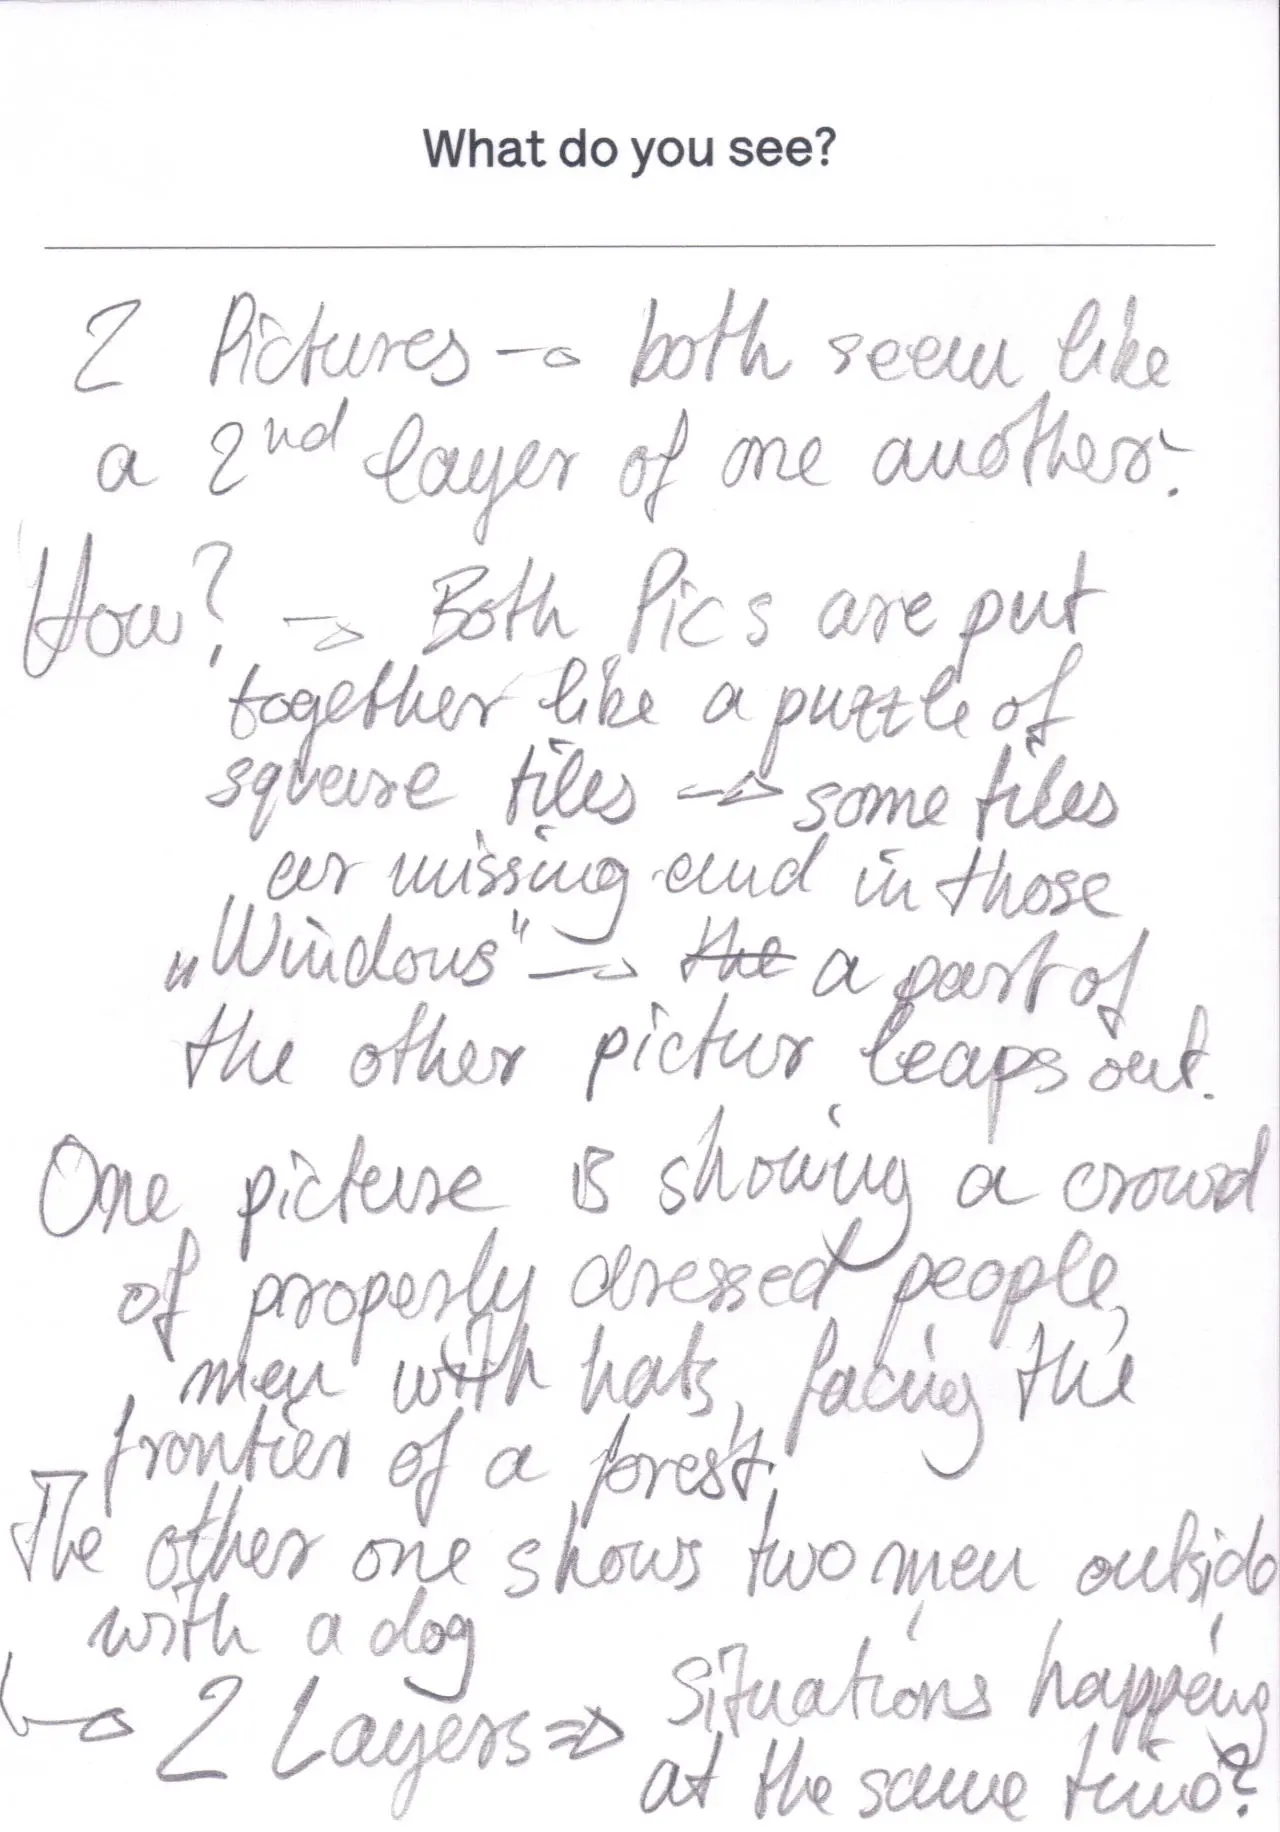 What do you see?
2 Pictures → both seem like
a 2nd layer of one another.
How? → Both Pics are put
together like a puzzle of
square tiles → some tiles
ar missing and in those
„Windows" → the a part of
the other pictur leaps out.
One picture is showing a crowd
of properly dressed people,
men with hats, facing the
frontier of a forest.
The other one shows two men outside
with a dog
→ 2 Layers ⇒ Situations happening
at the same time?